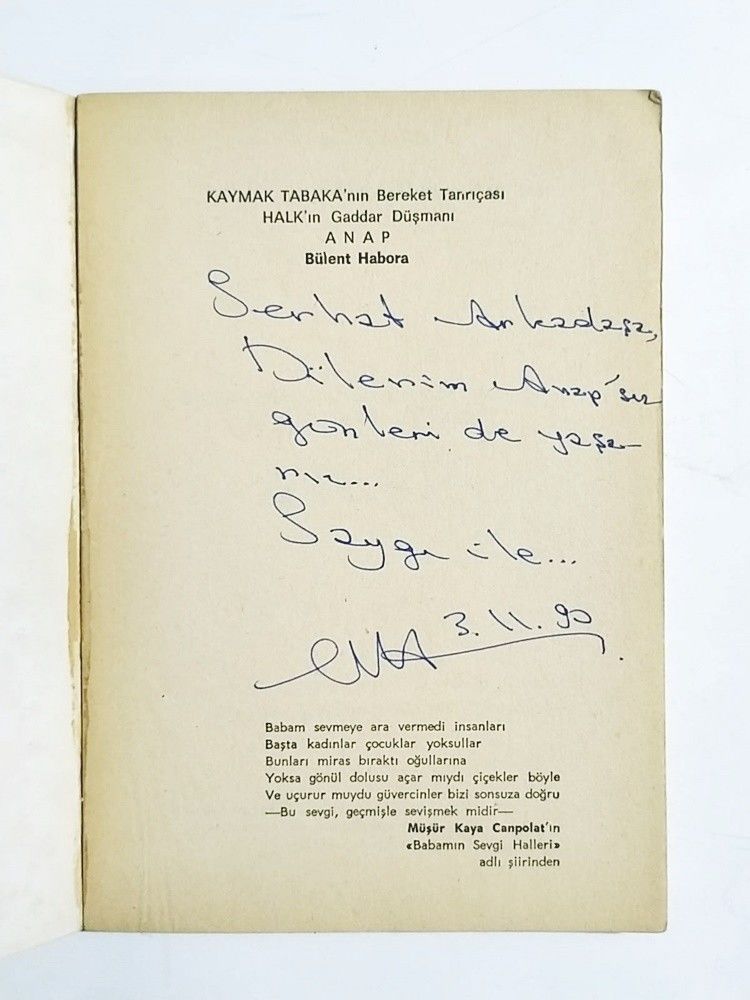 KAYMAK TABAKA'nın Bereket Tanrıçası
HALK'ın Gaddar Düşmanı
A N A P
Bülent Habora
Serhat Arkadaşa,
Dilerim Anap'sız
günleri de yaşa-
rız...
Saygı ile...
3.11.90
Babam sevmeye ara vermedi insanları
Başta kadınlar çocuklar yoksullar
Bunları miras bıraktı oğullarına
Yoksa gönül dolusu açar mıydı çiçekler böyle
Ve uçurur muydu güvercinler bizi sonsuza doğru
—Bu sevgi, geçmişle sevişmek midir—
Müşür Kaya Canpolat'ın
«Babamın Sevgi Halleri»
adlı şiirinden